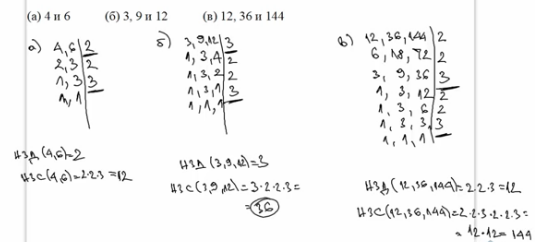 (а) 4 и 6 (б) 3, 9 и 12 (в) 12, 36 и 144
а)
4, 6 | 2
2, 3 | 2
1, 3 | 3
1, 1
НЗД (4,6)=2
НЗС(4,6)=2·2·3=12
б)
3, 9, 12 | 3
1, 3, 4 | 2
1, 3, 2 | 2
1, 3, 1 | 3
1, 1, 1
НЗД (3,9,12)=3
НЗС(3,9,12)=3·2·2·3=
=36
в)
12, 36, 144 | 2
6, 18, 72 | 2
3, 9, 36 | 3
1, 3, 12 | 2
1, 3, 6 | 2
1, 3, 3 | 3
1, 1, 1
НЗД(12,36,144)=2·2·3=12
НЗС(12,36,144)=2·2·3·2·2·3=
=12·12=144